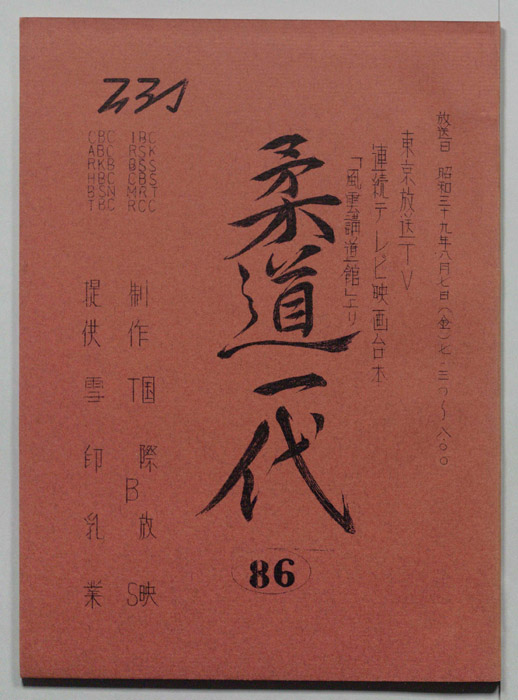 放送日 昭和三十九年八月七日(金)七・三〇〜八・〇〇
東京放送TV
連続テレビ映画台本
「風雲講道館」より
柔道一代
86
制作 TBS
国際放映
提供 雪印乳業
CBC
ABC
RKB
HBC
TBC
IBC
RSK
SBS
MRO